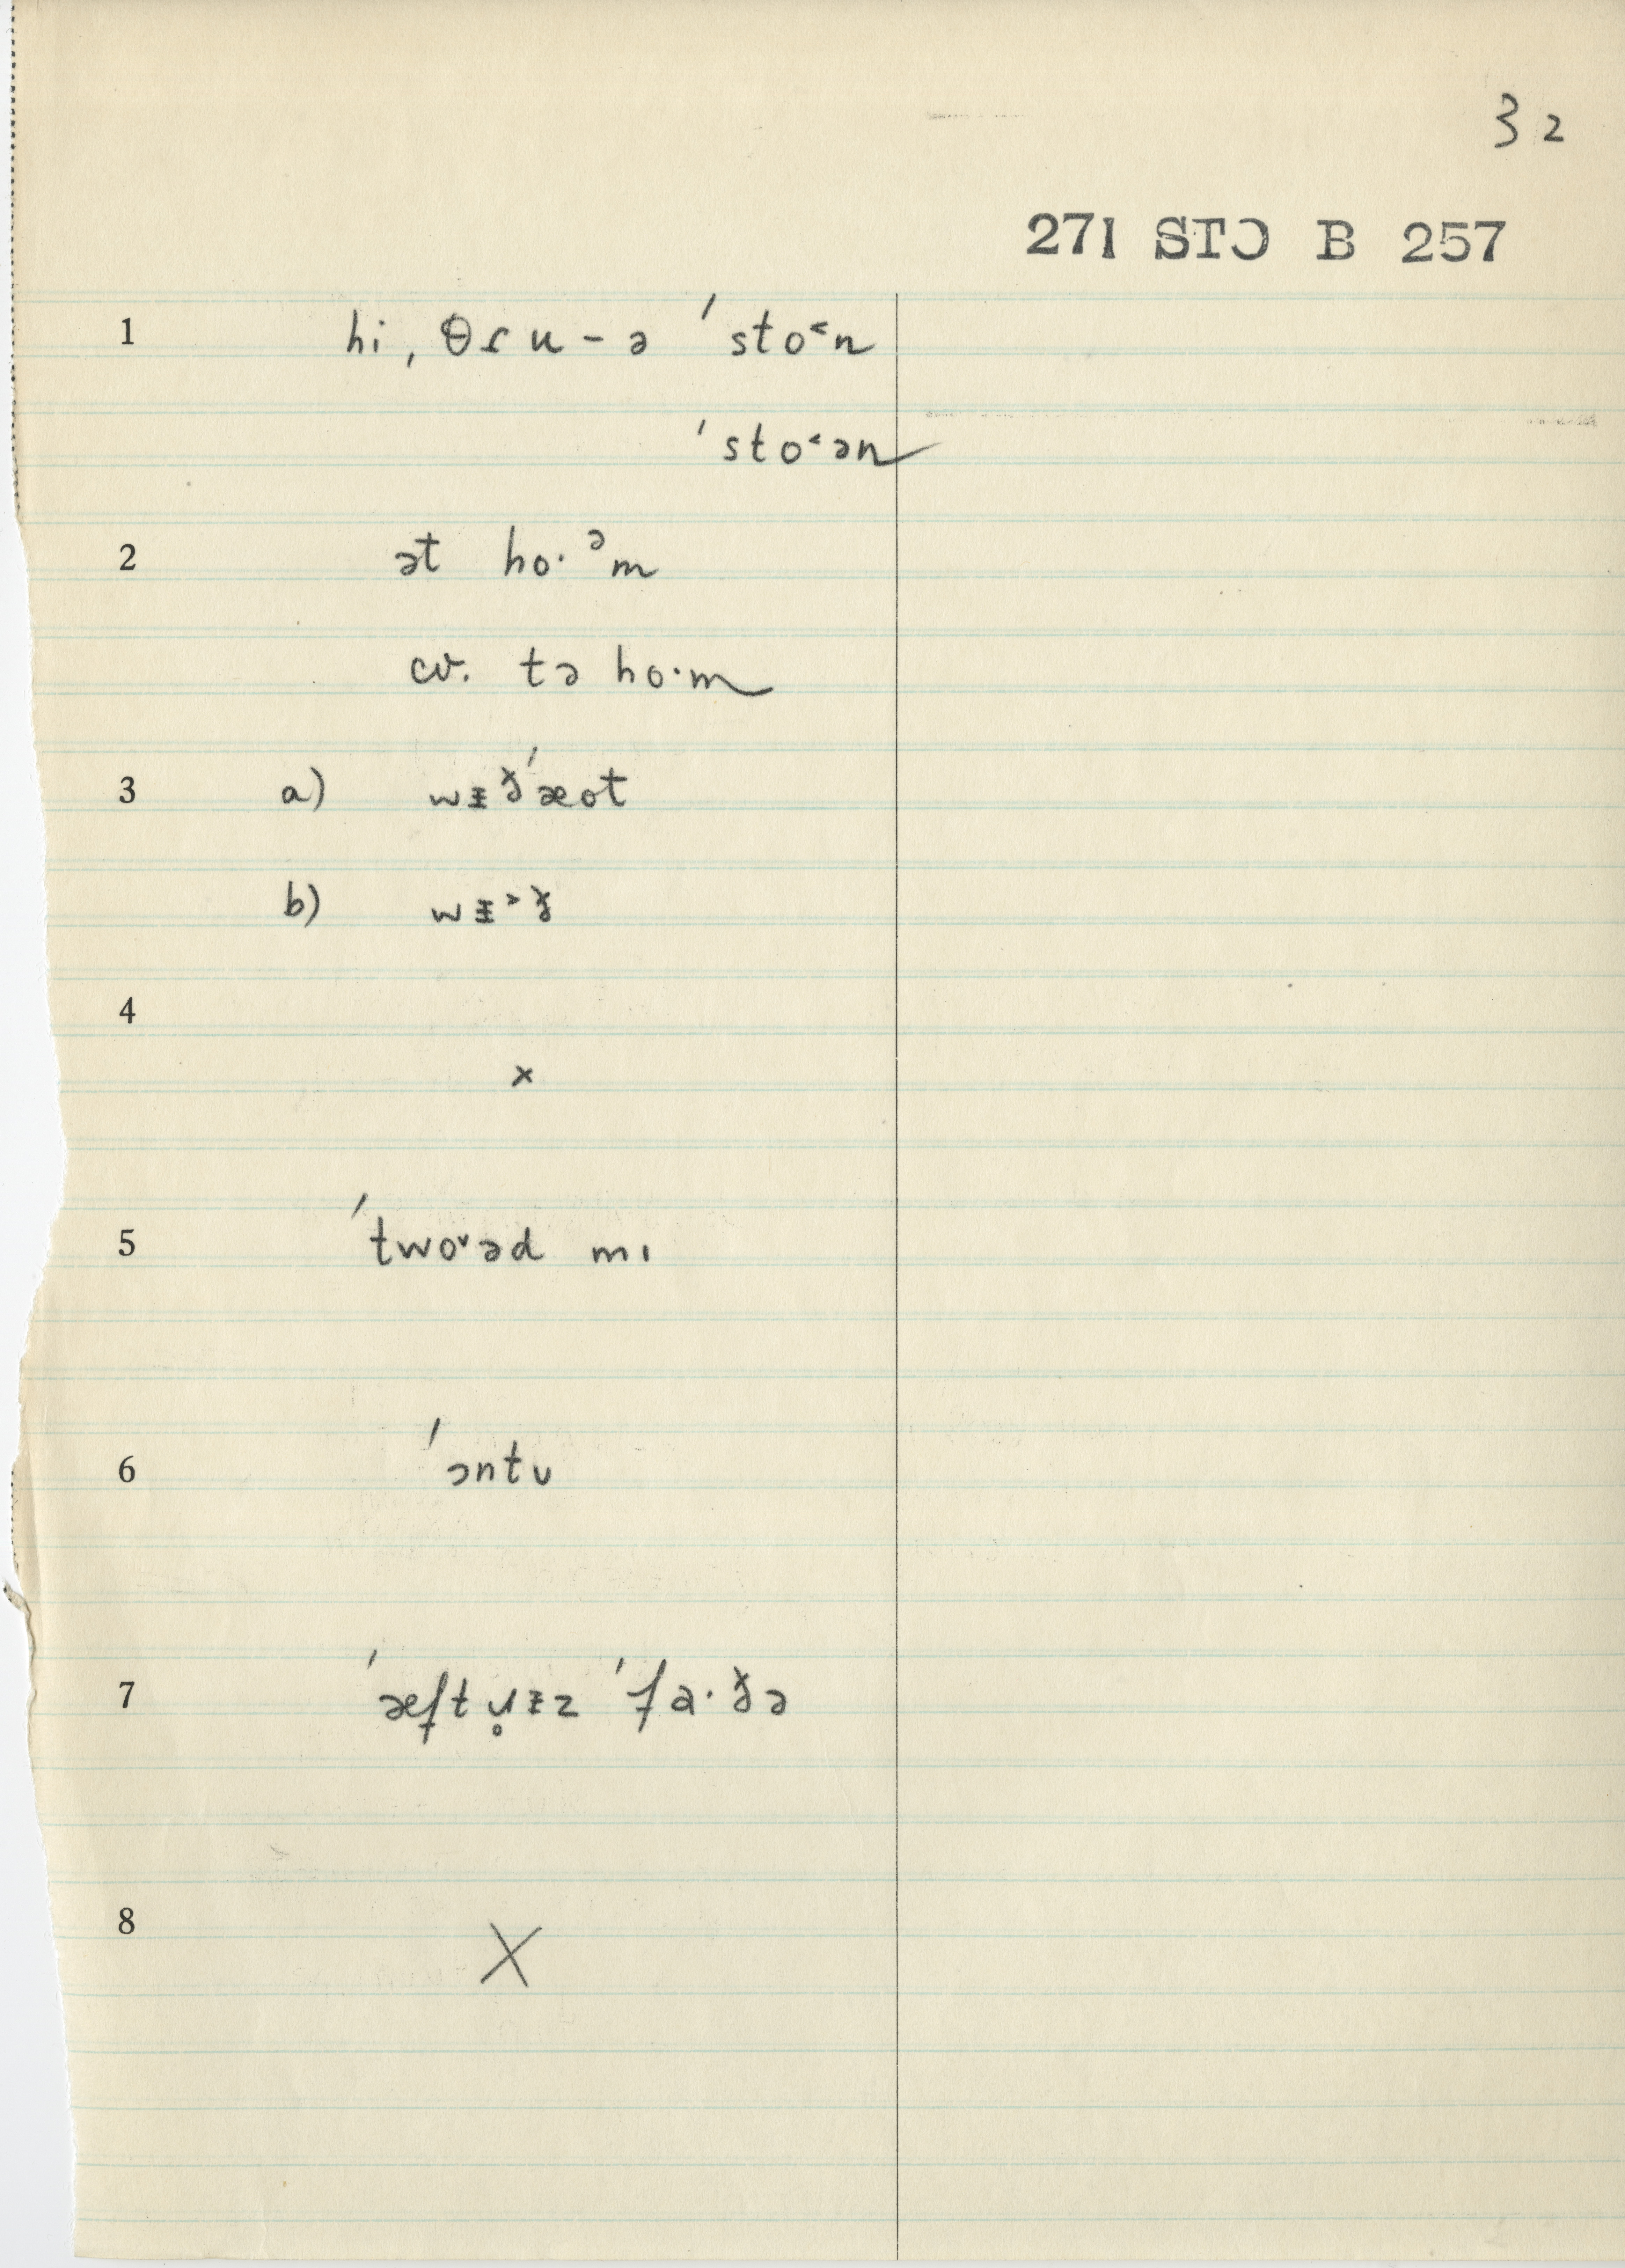 32
271 STↃ B 257
1 hi ˌθɾu - ə ˈsto˂n
ˈsto˂ən
2 ət ho·ᵊm
cv. tə ho·m
3 a) wɪ̵ðˈæot
b) wɪ̵˃ð
4 ×
5 ˈtwo˅əd mɪ
6 ˈɔntʊ
7 ˈæftɹ̥ɪ̵z ˈfa·ðə
8 X